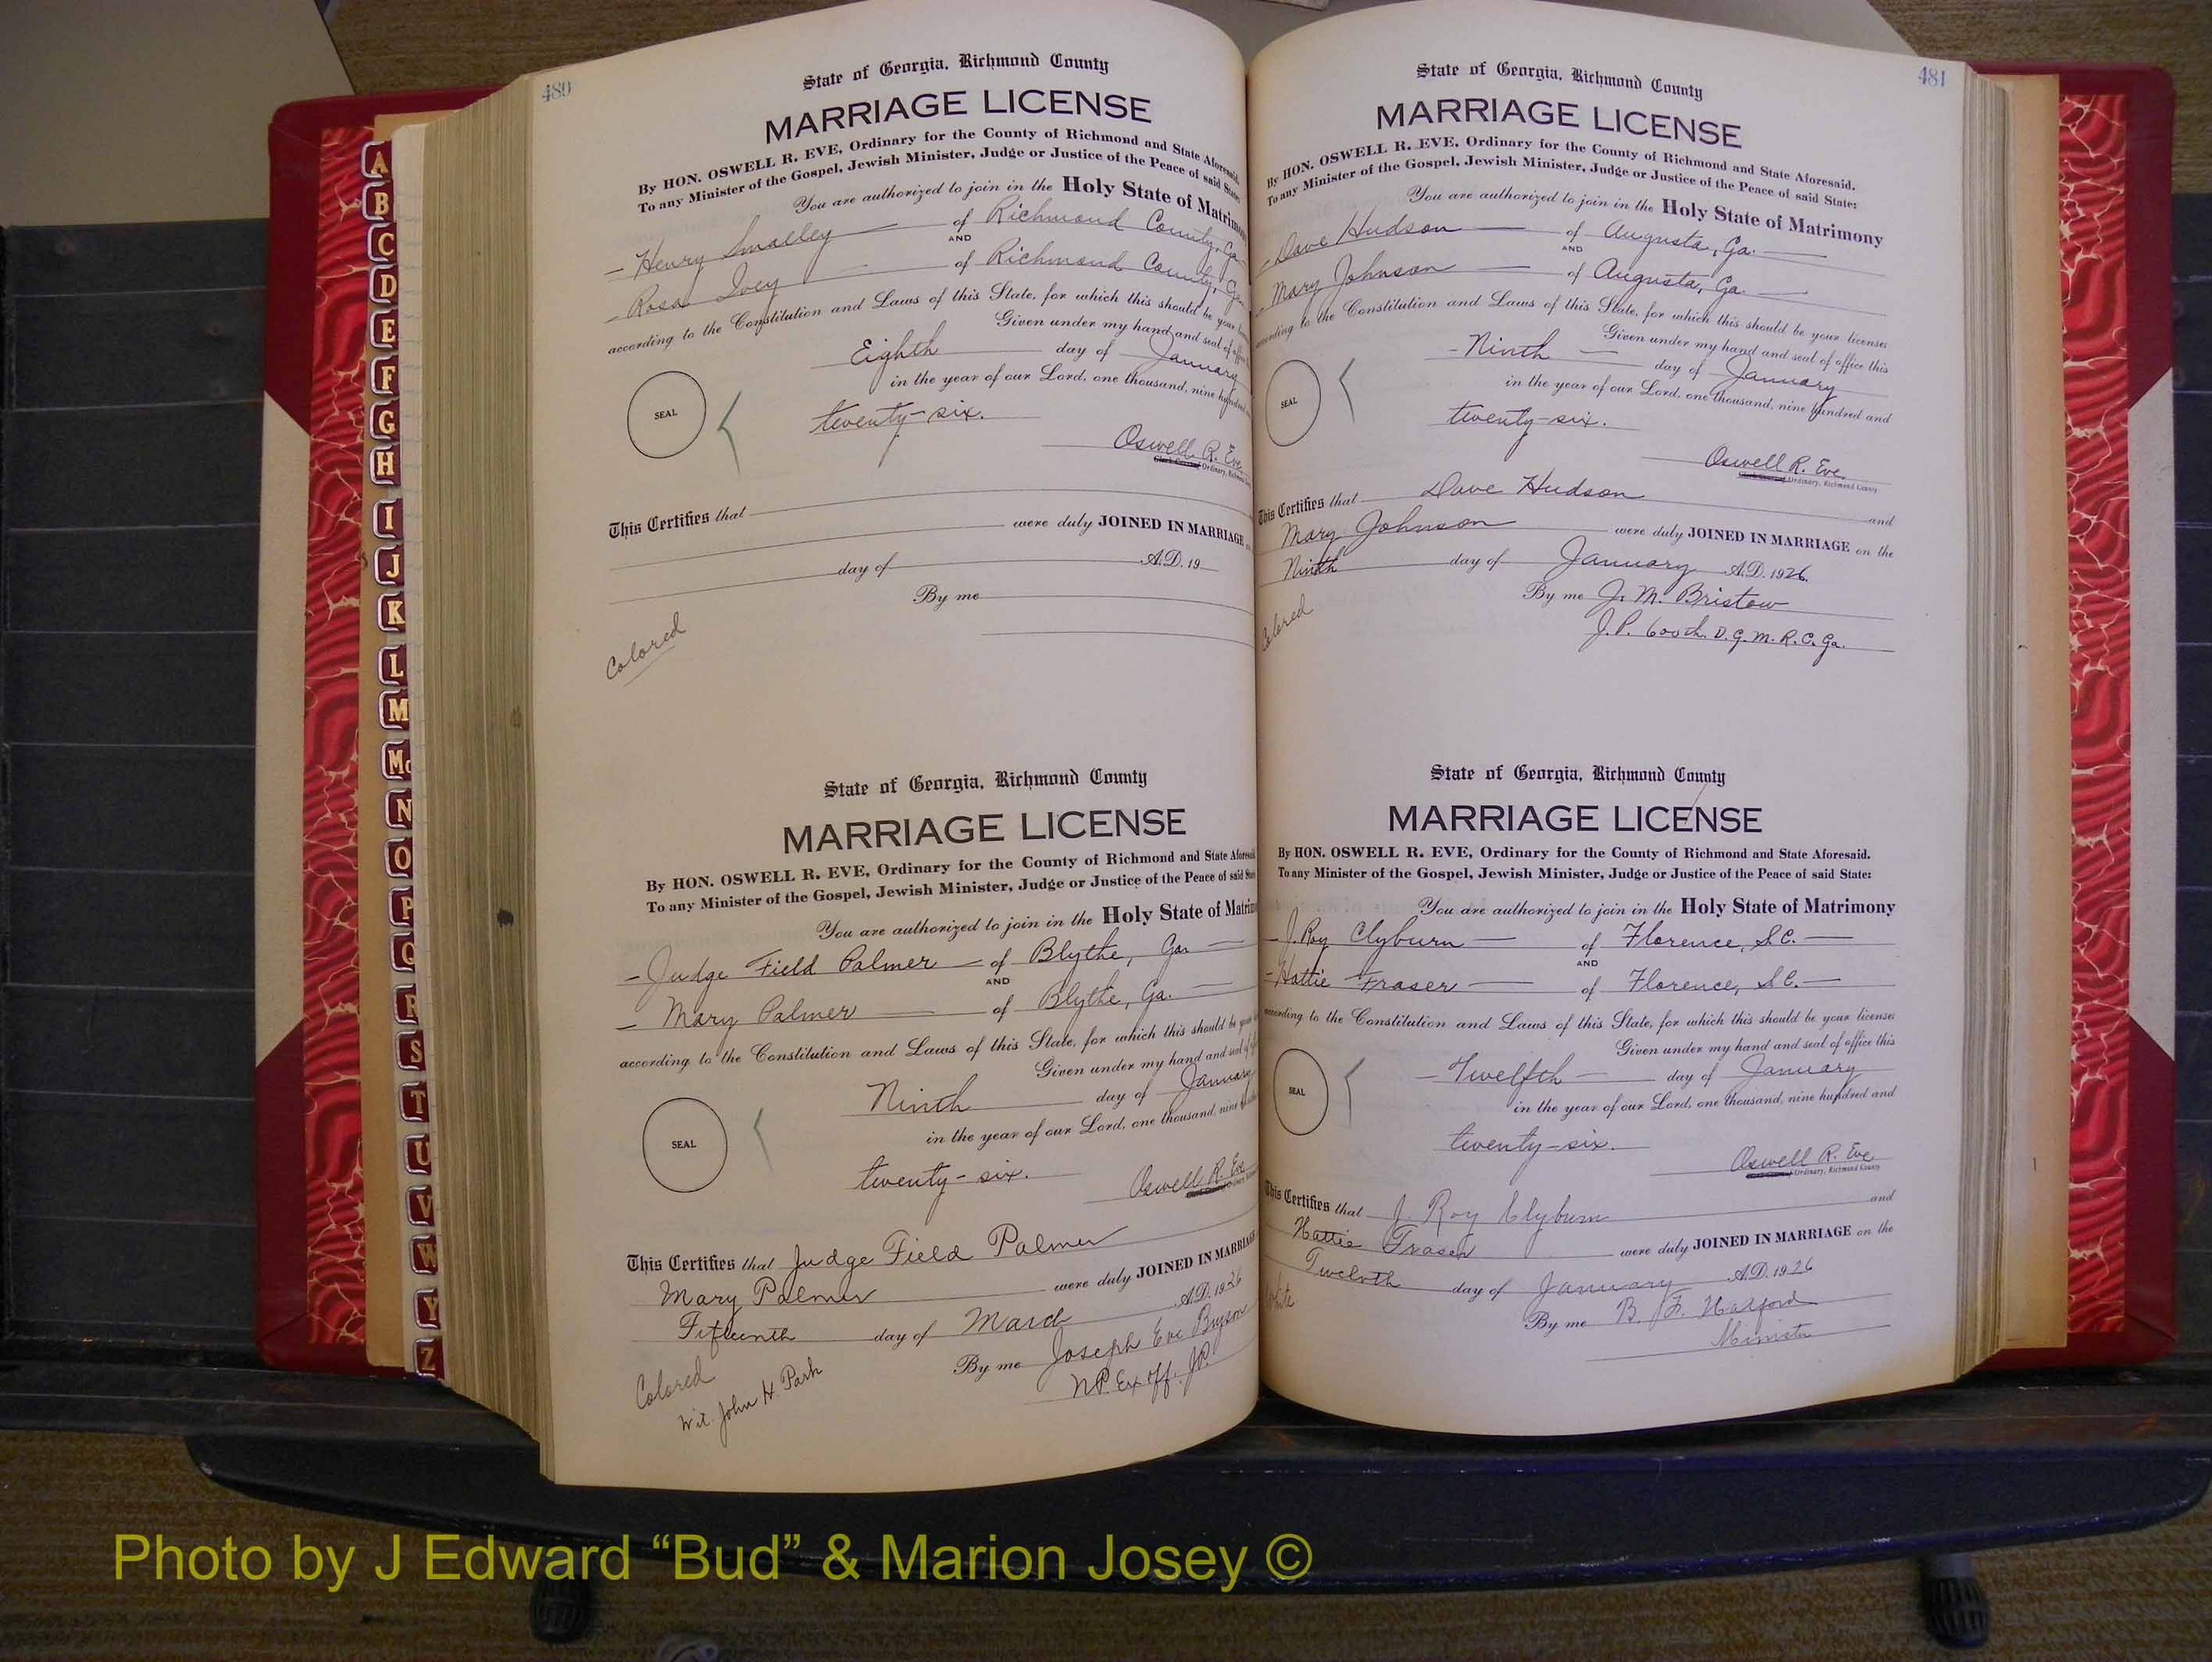 480
State of Georgia, Richmond County
MARRIAGE LICENSE
By HON. OSWELL R. EVE, Ordinary for the County of Richmond and State Aforesaid.
To any Minister of the Gospel, Jewish Minister, Judge or Justice of the Peace of said State:
You are authorized to join in the Holy State of Matrimony
Henry Smalley of Richmond County, Ga.
AND
Rosa Ivey of Richmond County, Ga.
according to the Constitution and Laws of this State, for which this should be your
Given under my hand and seal of office
Eighth day of January
in the year of our Lord, one thousand, nine hundred
SEAL
twenty-six.
Oswell R. Eve
Ordinary,
This Certifies that
were duly JOINED IN MARRIAGE
day of A.D. 19
By me
Colored
State of Georgia, Richmond County
MARRIAGE LICENSE
By HON. OSWELL R. EVE, Ordinary for the County of Richmond and State Aforesaid
To any Minister of the Gospel, Jewish Minister, Judge or Justice of the Peace of said State
You are authorized to join in the Holy State of Matrim
Judge Field Palmer of Blythe, Ga.
AND
Mary Palmer of Blythe, Ga.
according to the Constitution and Laws of this State, for which this should be your
Given under my hand and seal of
Ninth day of January
in the year of our Lord, one thousand, nine
SEAL
twenty-six.
Oswell R. Eve
This Certifies that Judge Field Palmer
Mary Palmer were duly JOINED IN MARRIAGE
Fifteenth day of March A.D. 1926
By me Joseph Eve
N.P. Ex Off. J.P.
Colored
Wit. John H. Park
481
State of Georgia, Richmond County
MARRIAGE LICENSE
By HON. OSWELL R. EVE, Ordinary for the County of Richmond and State Aforesaid.
To any Minister of the Gospel, Jewish Minister, Judge or Justice of the Peace of said State:
You are authorized to join in the Holy State of Matrimony
Dave Hudson of Augusta, Ga.
AND
Mary Johnson of Augusta, Ga.
according to the Constitution and Laws of this State, for which this should be your license
Given under my hand and seal of office this
Ninth day of January
in the year of our Lord, one thousand, nine hundred and
SEAL
twenty-six.
Oswell R. Eve
Ordinary, Richmond County
This Certifies that Dave Hudson and
Mary Johnson were duly JOINED IN MARRIAGE on the
Ninth day of January A.D. 1926.
By me J. M. Bristow
J.P. 600th. D.G.M.R.C. Ga.
Colored
State of Georgia, Richmond County
MARRIAGE LICENSE
By HON. OSWELL R. EVE, Ordinary for the County of Richmond and State Aforesaid.
To any Minister of the Gospel, Jewish Minister, Judge or Justice of the Peace of said State:
You are authorized to join in the Holy State of Matrimony
J. Roy Clyburn of Florence, S.C.
AND
Hattie Fraser of Florence, S.C.
according to the Constitution and Laws of this State, for which this should be your license
Given under my hand and seal of office this
Twelfth day of January
in the year of our Lord, one thousand, nine hundred and
SEAL
twenty-six.
Oswell R. Eve
Ordinary, Richmond County
This Certifies that J. Roy Clyburn and
Hattie Fraser were duly JOINED IN MARRIAGE on the
Twelvth day of January A.D. 1926
By me B. F.
Minister
White
A
B
C
D
E
F
G
H
I
J
K
L
M
Mc
N
O
P
Q
R
S
T
U
V
W
Y
Z
Photo by J Edward “Bud” & Marion Josey ©